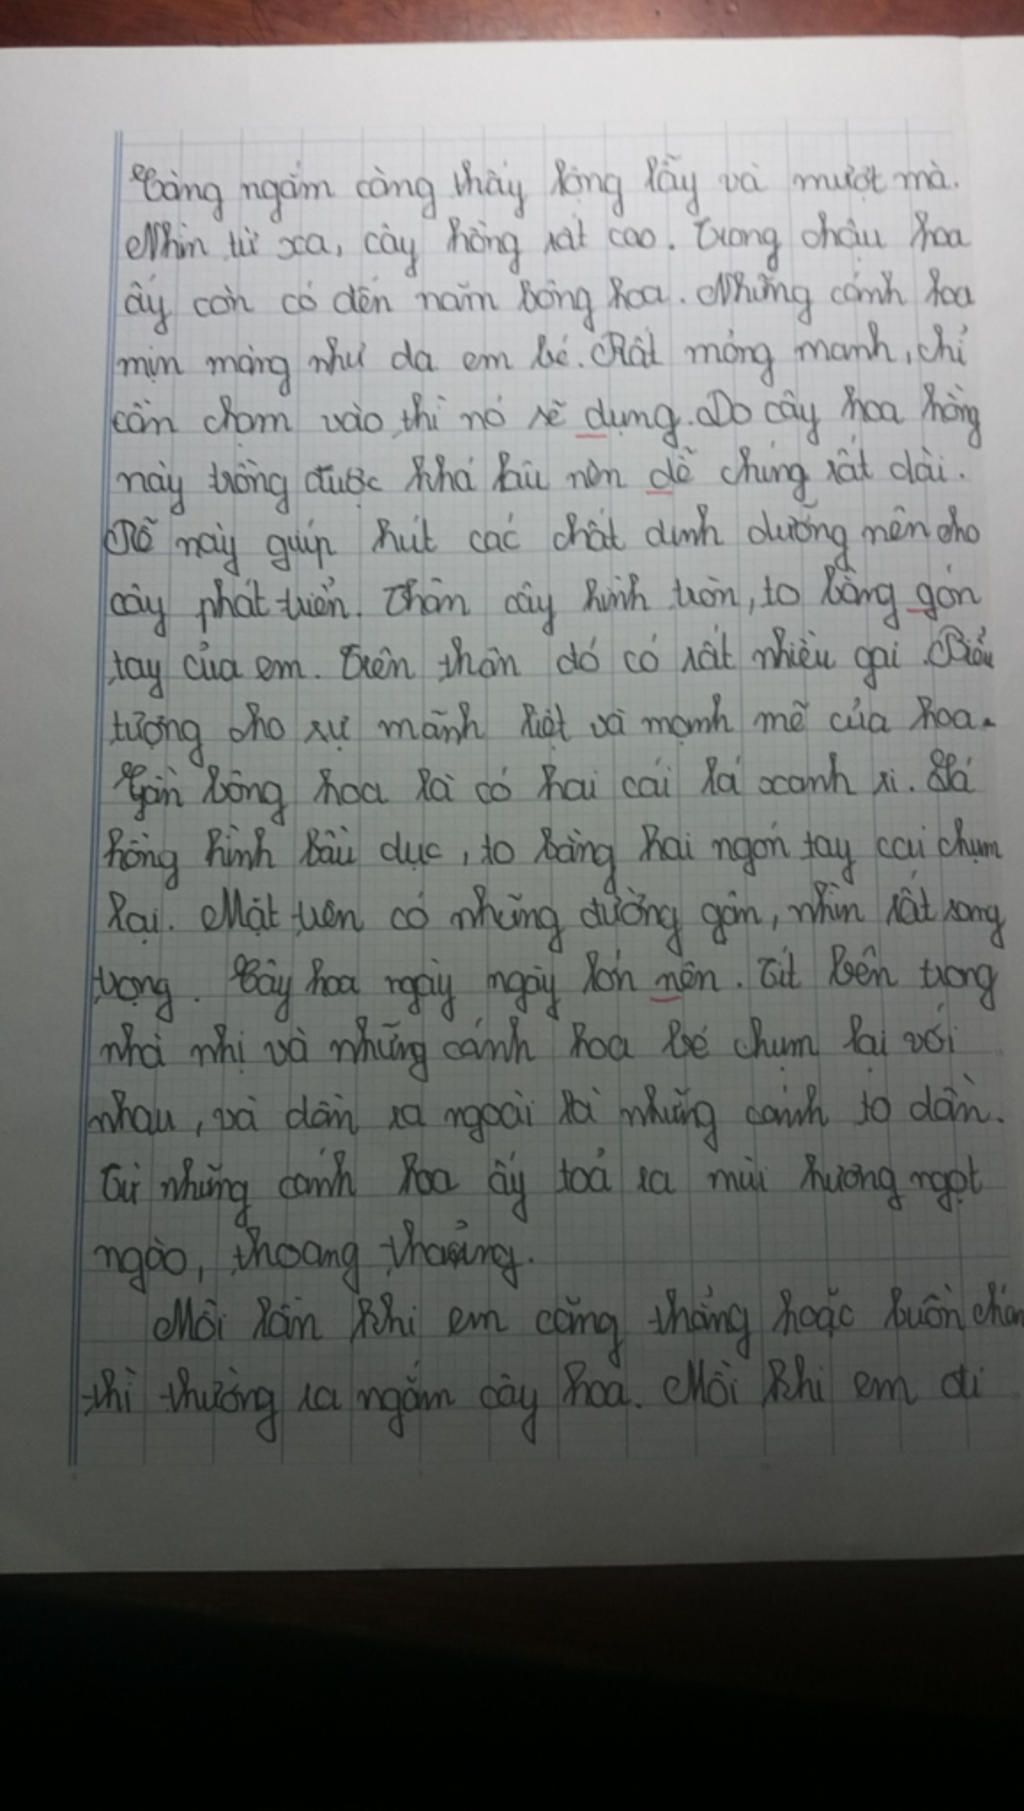 Càng ngắm càng thấy lộng lẫy và mượt mà.
Nhìn từ xa, cây hồng rất cao. Trong chậu hoa
ấy còn có đến năm bông hoa. Những cánh hoa
mịn màng như da em bé. Rất mỏng manh, chỉ
cần chạm vào thì nó sẽ dụng. Do cây hoa hồng
này trồng được khá lâu nên dễ chúng rất dài.
Rễ này giúp hút các chất dinh dưỡng nên cho
cây phát triển. Thân cây hình tròn, to bằng gón
tay của em. Trên thân đó có rất nhiều gai. Biểu
tượng cho sự mãnh liệt và mạnh mẽ của hoa.
Gần bông hoa là có hai cái lá xanh rì. Lá
hồng hình bầu dục, to bằng hai ngón tay cái chụm
lại. Mặt trên có những đường gân, nhìn rất sang
trọng. Cây hoa ngày ngày lớn nên. Tít bên trong
nhà nhị và những cánh hoa bé chụm lại với
nhau, và dần ra ngoài là những cánh to dần.
Từ những cánh hoa ấy toả ra mùi hương ngọt
ngào, thoang thoảng.
Mỗi lần khi em căng thẳng hoặc buồn chán
thì thường ra ngắm cây hoa. Mỗi khi em đi